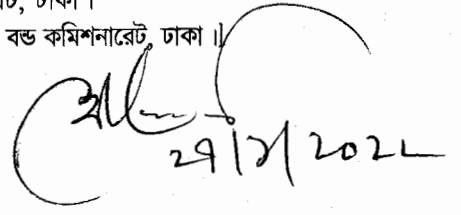 ঢাকা।
বন্ড কমিশনারেট, ঢাকা।
২৭|১|২০২২